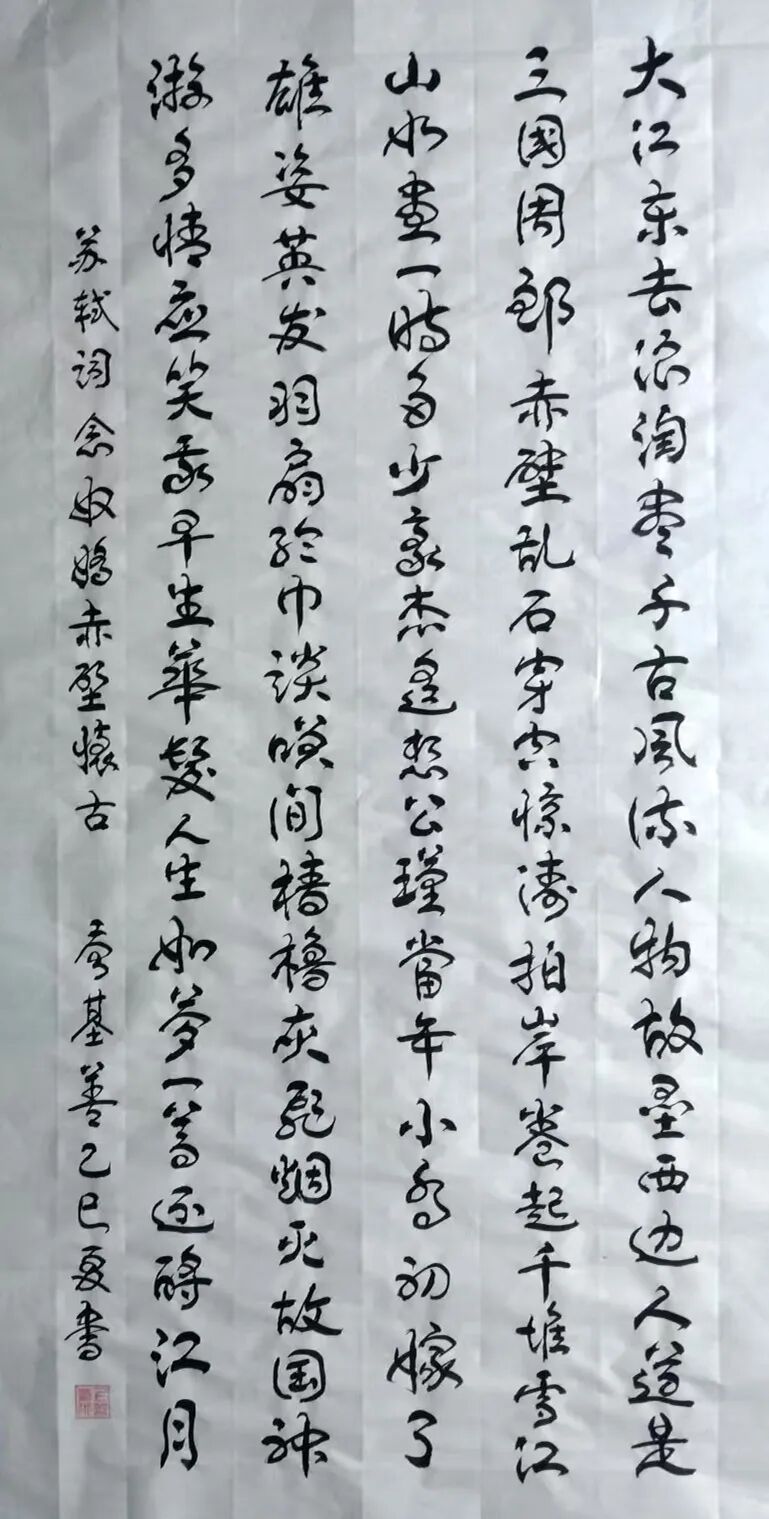 大江东去浪淘尽千古风流人物故垒西边人道是
三國周郎赤壁乱石穿空惊涛拍岸卷起千堆雪江
山如画一时多少豪杰遥想公瑾當年小乔初嫁了
雄姿英发羽扇纶巾談笑间樯橹灰飞烟灭故国神
游多情应笑我早生華髮人生如夢一尊还酹江月
苏轼词念奴娇赤壁懷古 基善乙巳夏书